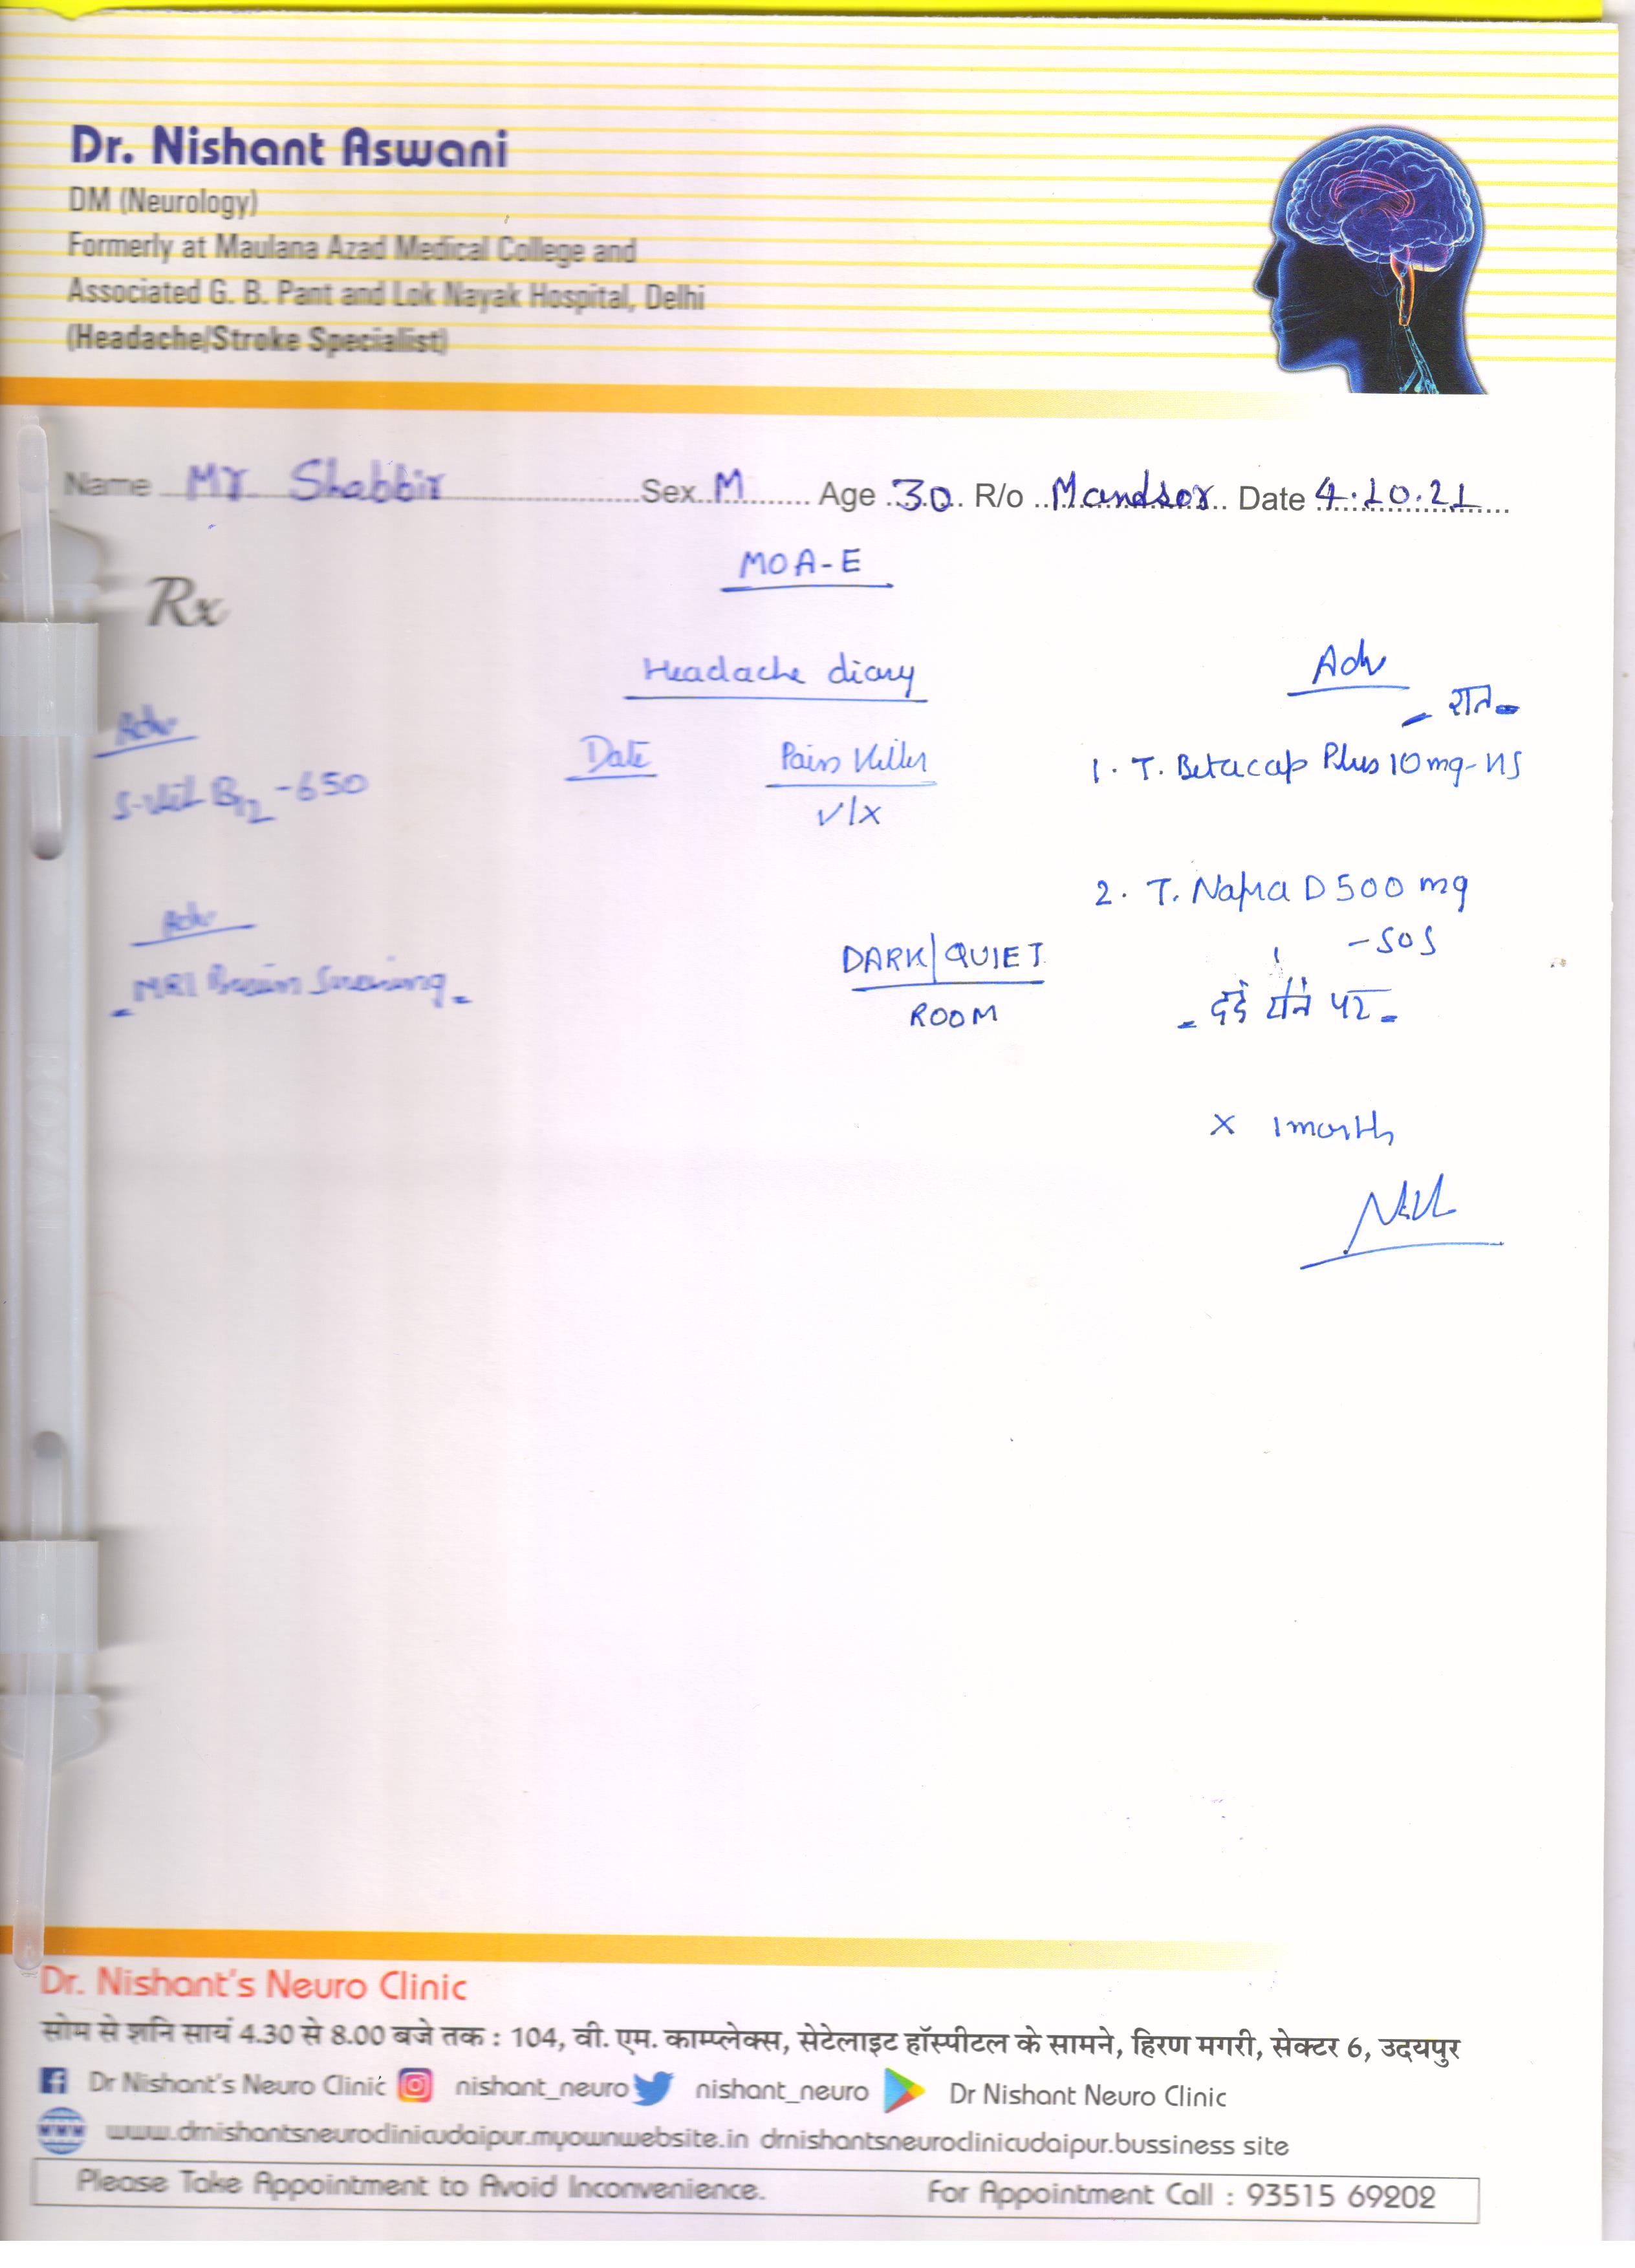 Dr. Nishant Aswani
DM (Neurology)
Formerly at Maulana Azad Medical College and
Associated G. B. Pant and Lok Nayak Hospital, Delhi
(Headache/Stroke Specialist)
Name Mr. Shabbir Sex M Age 30 R/o Mandsor Date 4.10.21
MOA-E
Rx
Headache diary
Adv
Date
Pain Killer
√/x
S. Vit B12 - 650
Adv
MRI Brain
DARK/QUIET
ROOM
Adv
- रात -
1. T. Betacap Plus 10 mg - HS
2. T. Napra D 500 mg
- SOS
- दर्द होने पर -
x 1 month
Dr. Nishant's Neuro Clinic
सोम से शनि सायं 4.30 से 8.00 बजे तक : 104, वी. एम. काम्प्लेक्स, सेटेलाइट हॉस्पीटल के सामने, हिरण मगरी, सेक्टर 6, उदयपुर
Dr Nishant's Neuro Clinic nishant_neuro nishant_neuro Dr Nishant Neuro Clinic
www www.drnishantsneuroclinicudaipur.myownwebsite.in drnishantsneuroclinicudaipur.bussiness site
Please Take Appointment to Avoid Inconvenience. For Appointment Call : 93515 69202